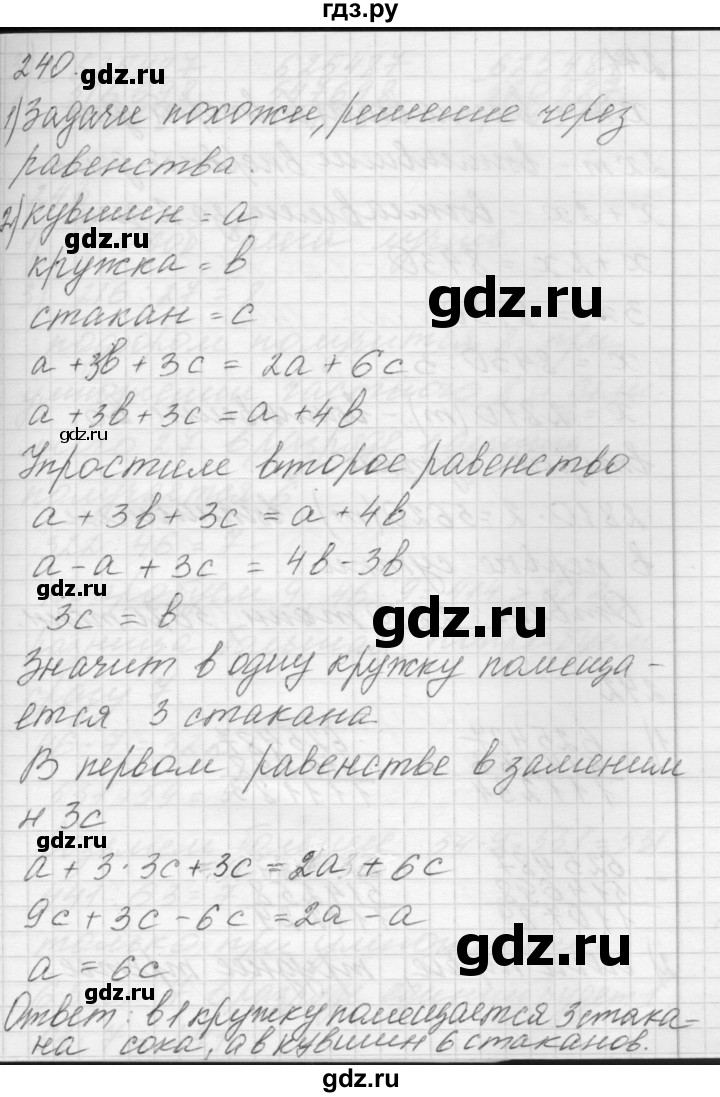 гдз.ру
240.
1) Задачи похожи, решение через
равенства.
2) кувшин = а
gdz.ru
кружка = в
gdz.ru
стакан = с
а + 3в + 3с = 2а + 6с
а + 3в + 3с = а + 4в
gdz.ru
Упростиле второе равенство
а + 3в + 3с = а + 4в
а - а + 3с = 4в - 3в
gdz.ru
3с = в
gdz.ru
Значит в одну кружку помеща-
ется 3 стакана
В первом равенстве в заменим
н 3с
gdz.ru
а + 3 · 3с + 3с = 2а + 6с
9с + 3с - 6с = 2а - а
gdz.ru
а = 6с
gdz.ru
Ответ: в 1 кружку помещается 3 стака-
на сока, а в кувшин 6 стаканов.
gdz.ru
gdz.ru